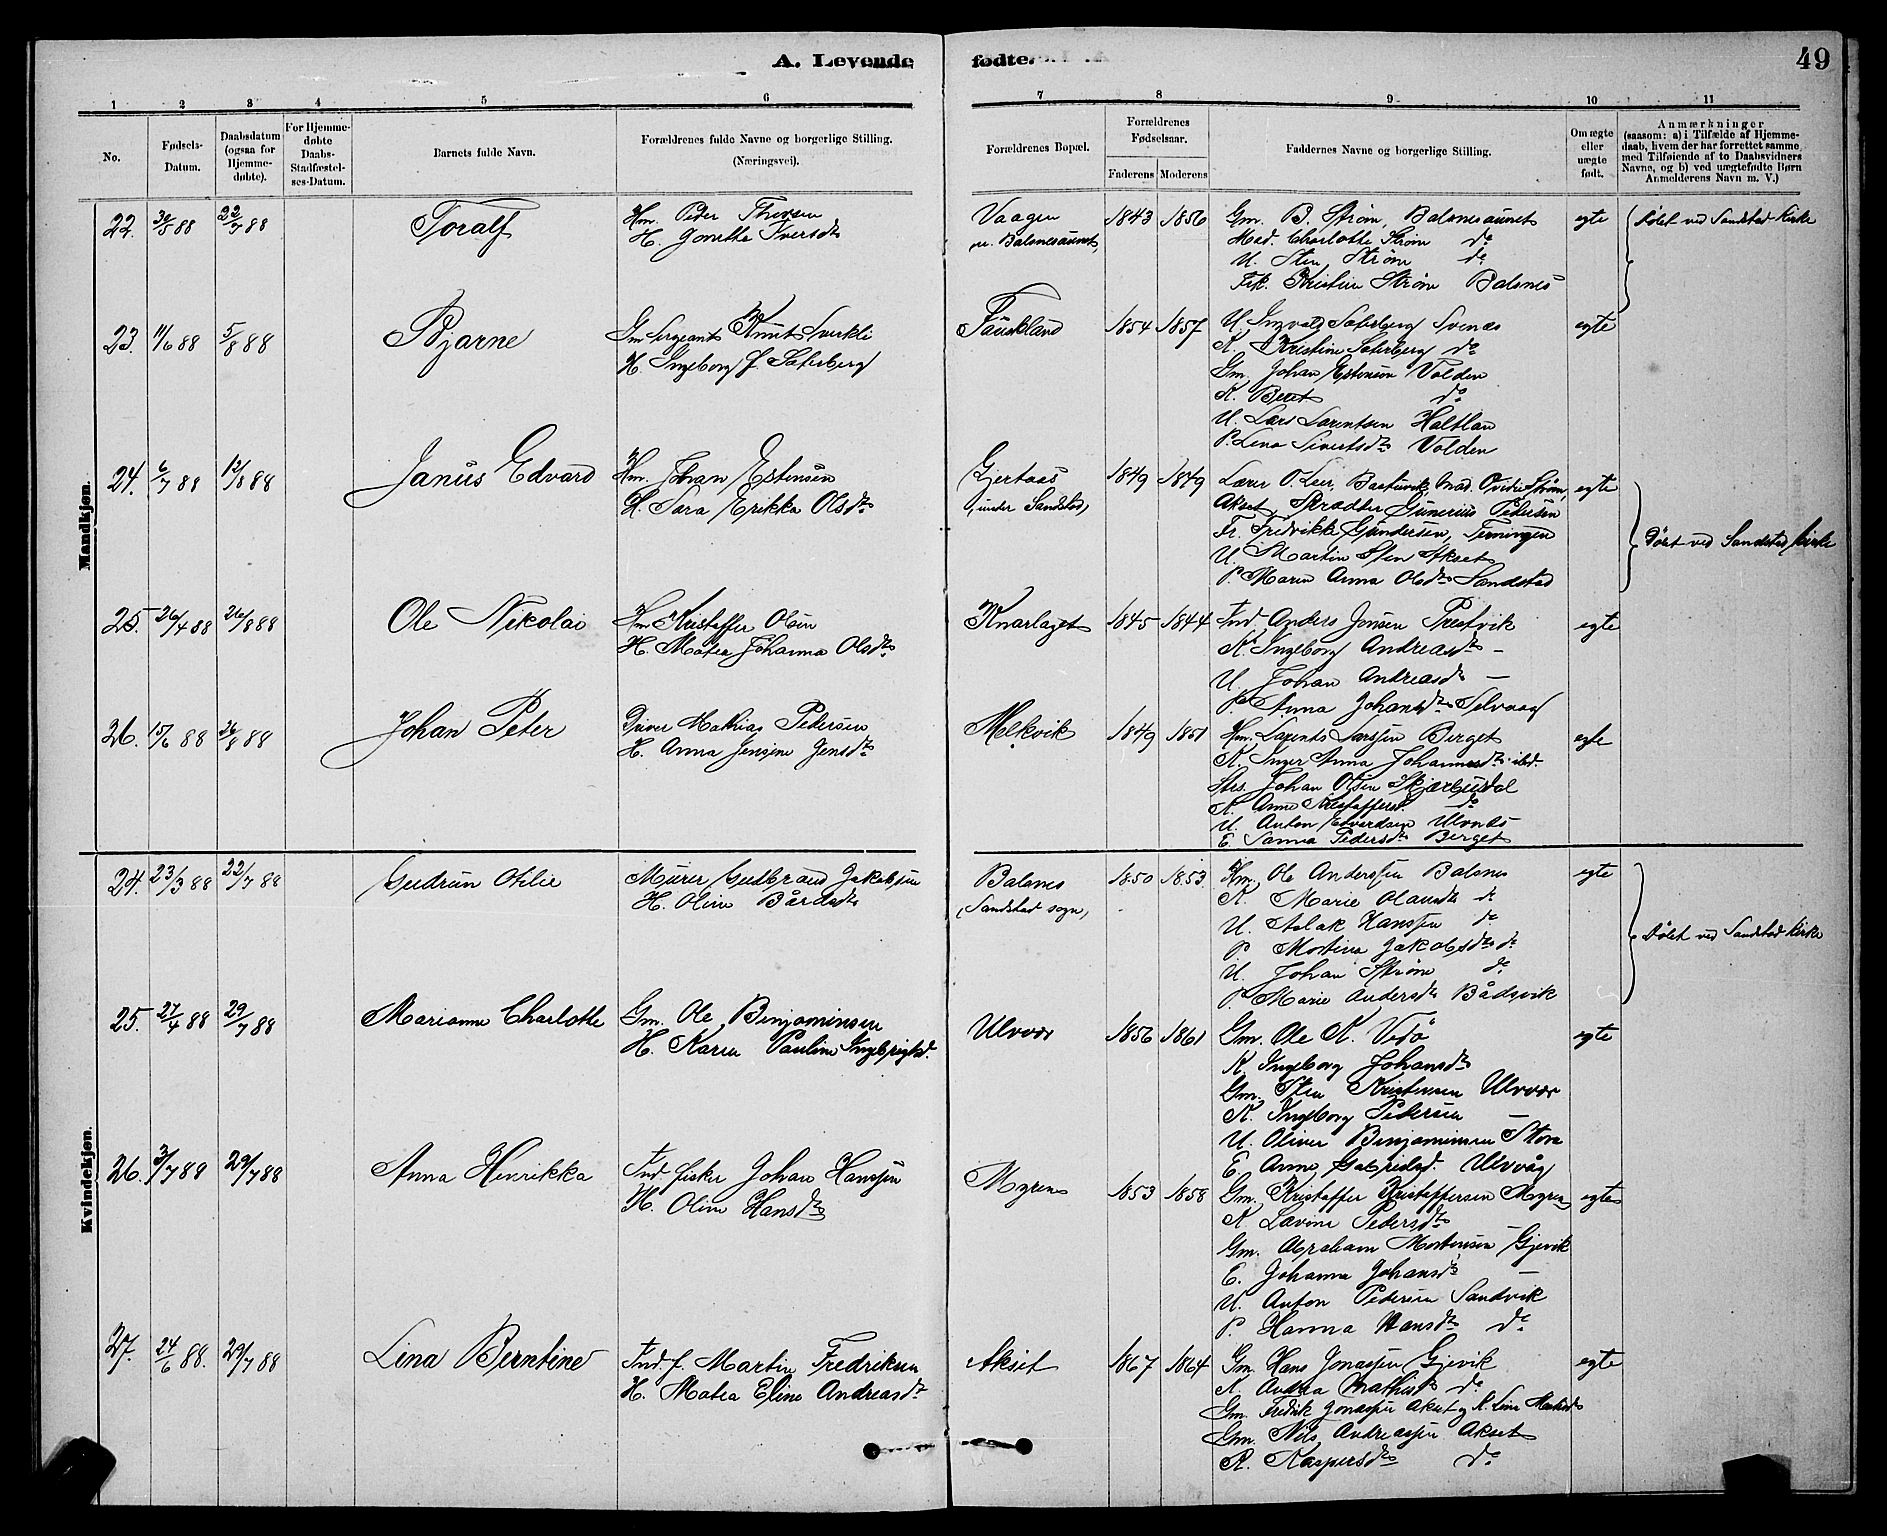 A. Levende fødte.
49
1 2 3 4 5 6 7 8 9 10 11
No.
Fødsels-Datum.
Daabsdatum (ogsaa for Hjemmedøbte).
For Hjemmedøbte Daabs-Stadfæstelses-Datum.
Barnets fulde Navn.
Forældrenes fulde Navne og borgerlige Stilling. (Næringsvei).
Forældrenes Bopæl.
Forældrenes Fødselsaar.
Faderens Moderens
Faddernes Navne og borgerlige Stilling.
Om ægte eller uægte født.
Anmærkninger
(saasom: a) i Tilfælde af Hjemmedaab, hvem der har forrettet samme, med Tilføiende af to Daabsvidners Navne, og b) ved uægtefødte Børn Anmelderens Navn m. V.)
Mandkjøn.
22. 30/5 88 22/7 88 Toralf
Hm. Peder Thorsen
H. Gonetta Iversdtr
Vaagen
u. Balsnesaunet
1843 1856
Gm. B. Strøm, Balsnesaunet
Mad. Charlotte Strøm do
U. Sten Strøm do
Frk. Kristine Strøm Balsnes
egte
Døbt ved Sandstad Kirke
23. 11/6 88 5/8 88 Bjarne
Gm Sergeant Knut Sverkli
H. Ingeborg f. Saterberg
Fauskland
1854 1857
U. Ingvald Saterberg Svenaas
K. Kristine Saterberg do
Gm. Johan Estensen Volden
K. Beret do
U. Lars Larentsen Haltlan
P. Lena Sivertsdtr Volden
egte
24. 6/7 88 12/8 88 Janus Edvard
Hm. Johan Estensen
H. Sara Erikka Olsdtr
Gjertaas
(under Sandstad)
1849 1849
Lærer O. Leer, Bastuvik Mad. Ovidie Strøm,
Akset, Strædder Gunerius Pedersen
Fr. Fredrikke Gundersen, Terningen
U. Martin Sten Akset
P. Maren Anna Olsdtr Sandstad
egte
Døbt ved Sandstad Kirke
25. 26/4 88 26/8 88 Ole Nikolai
Hm Kristoffer Olsen
H. Matea Johanna Olsdtr
Knarlaget
1845 1844
Ind Anders Jensen Prestvik
K. Ingeborg Andreasdtr -
U Johan Andreasdtr -
P. Anna Johansdtr Selvaag
egte
26. 15/6 88 26/8 88 Johan Peter
Driver Mathias Pedersen
H. Anna Jensine Jensdtr
Melkvik
1849 1851
Hm. Larents Larssen Berget
K. Inger Anna Johannesdtr ibd.
Strs. Johan Olsen Skjærbusdal
K. Anne Kristoffersd. do
U. Anton Edvardsen Ulvnes
E. Sanna Pedersdtr Berget
egte
Kvindekjøn.
24. 23/3 88 22/7 88 Gudrun Otilie
Murer Gudbrand Jakobsen
H. Oline Bårdsdtr
Balsnes
(Sandstad sogn)
1850 1853
Hm. Ole Anderssen Balsnes
K. Marie Olausdtr do
U. Aslak Hanssen do
P. Mortina Jakobsdtr do
U. Johan Strøm do
P. Marie Andersdtr Bådsvik
egte
Døbt ved Sandstad Kirke
25. 27/4 88 29/7 88 Marianne Charlotte
Gm. Ole Binjaminsen
H. Karen Pauline Ingebrigtsd.
Ulvvær
1856 1861
Gm. Ole K. Vedø
K. Ingeborg Johansdtr
Gm. Sten Kristensen Ulvvær
K. Ingeborg Pedersen -
U. Oliver Binjaminsen Stora
E. Anne Gabrielsd. Ulvvåg
egte
26. 3/7 88 29/7 88 Anna Henrikka
Ind. fisker Johan Hanssen
H. Oline Hansdtr
Myren
1853 1858
Gm. Kristoffer Kristoffersen Myren
K Lavine Pedersdtr -
Gm. Abraham Mortensen Gjevik
E. Johanna Johansdtr -
U. Anton Pedersen Sandvik
P. Hanna Hansdtr do
egte
27. 24/6 88. 29/7 88 Lina Berntine
Ind. f. Martin Fredriksen
H. Matea Eline Andreasdtr
Akset
1867 1864
Gm. Hans Jonassen Gjevik
K. Andrea Mathisdtr do
Gm. Fredrik Jonassen Akset og K. Line
Gm. Nils Andreassen Akset
K. Kaspersdtr do
egte